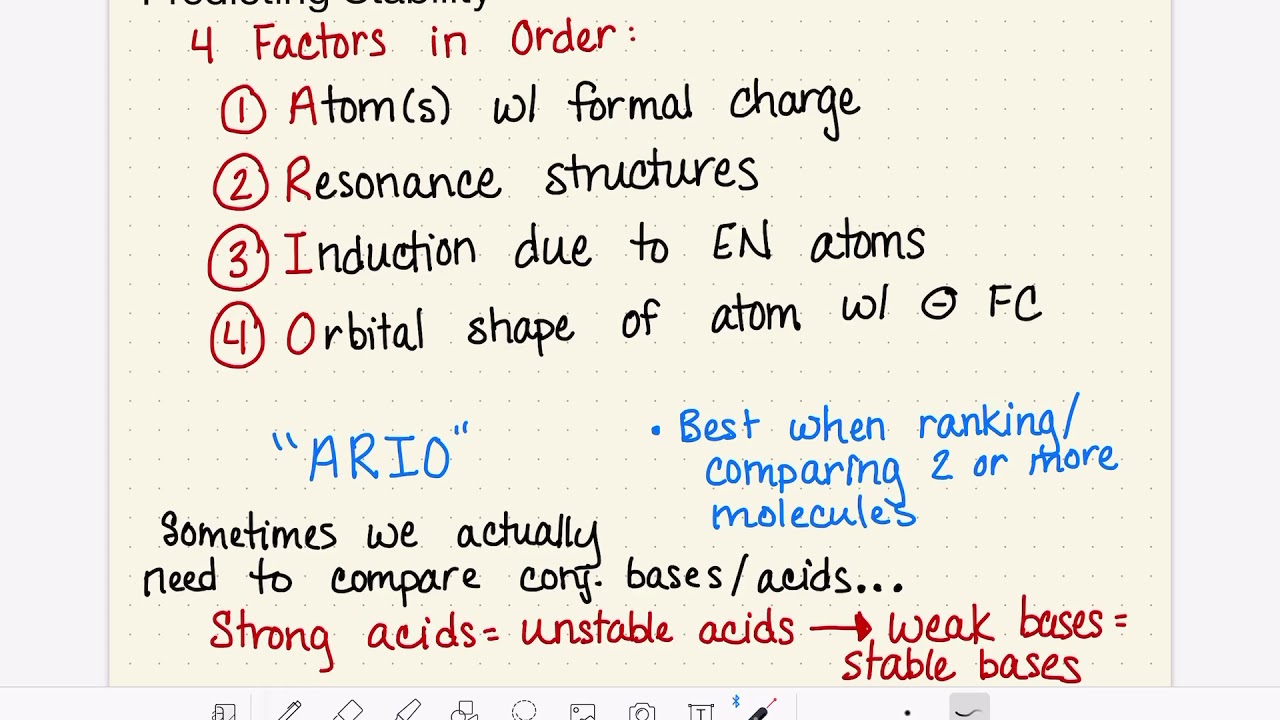 Predicting Stability
4 Factors in Order:
① Atom(s) w/ formal charge
② Resonance structures
③ Induction due to EN atoms
④ Orbital shape of atom w/ ⊖ FC
"ARIO"
• Best when ranking/
comparing 2 or more
molecules
Sometimes we actually
need to compare conj. bases/acids...
Strong acids = unstable acids → weak bases =
stable bases